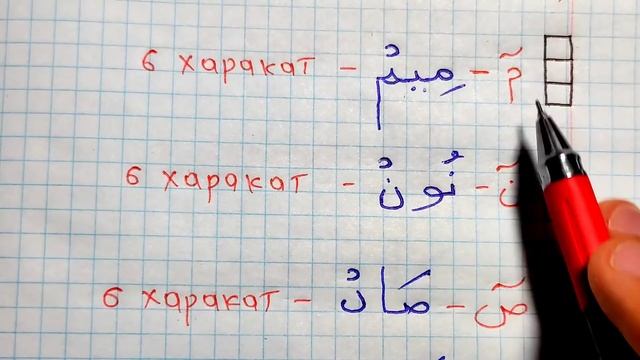 6 харакат – مِيمْ – مٓ
6 харакат – نُونْ – نٓ
6 харакат – صَادْ – صٓ